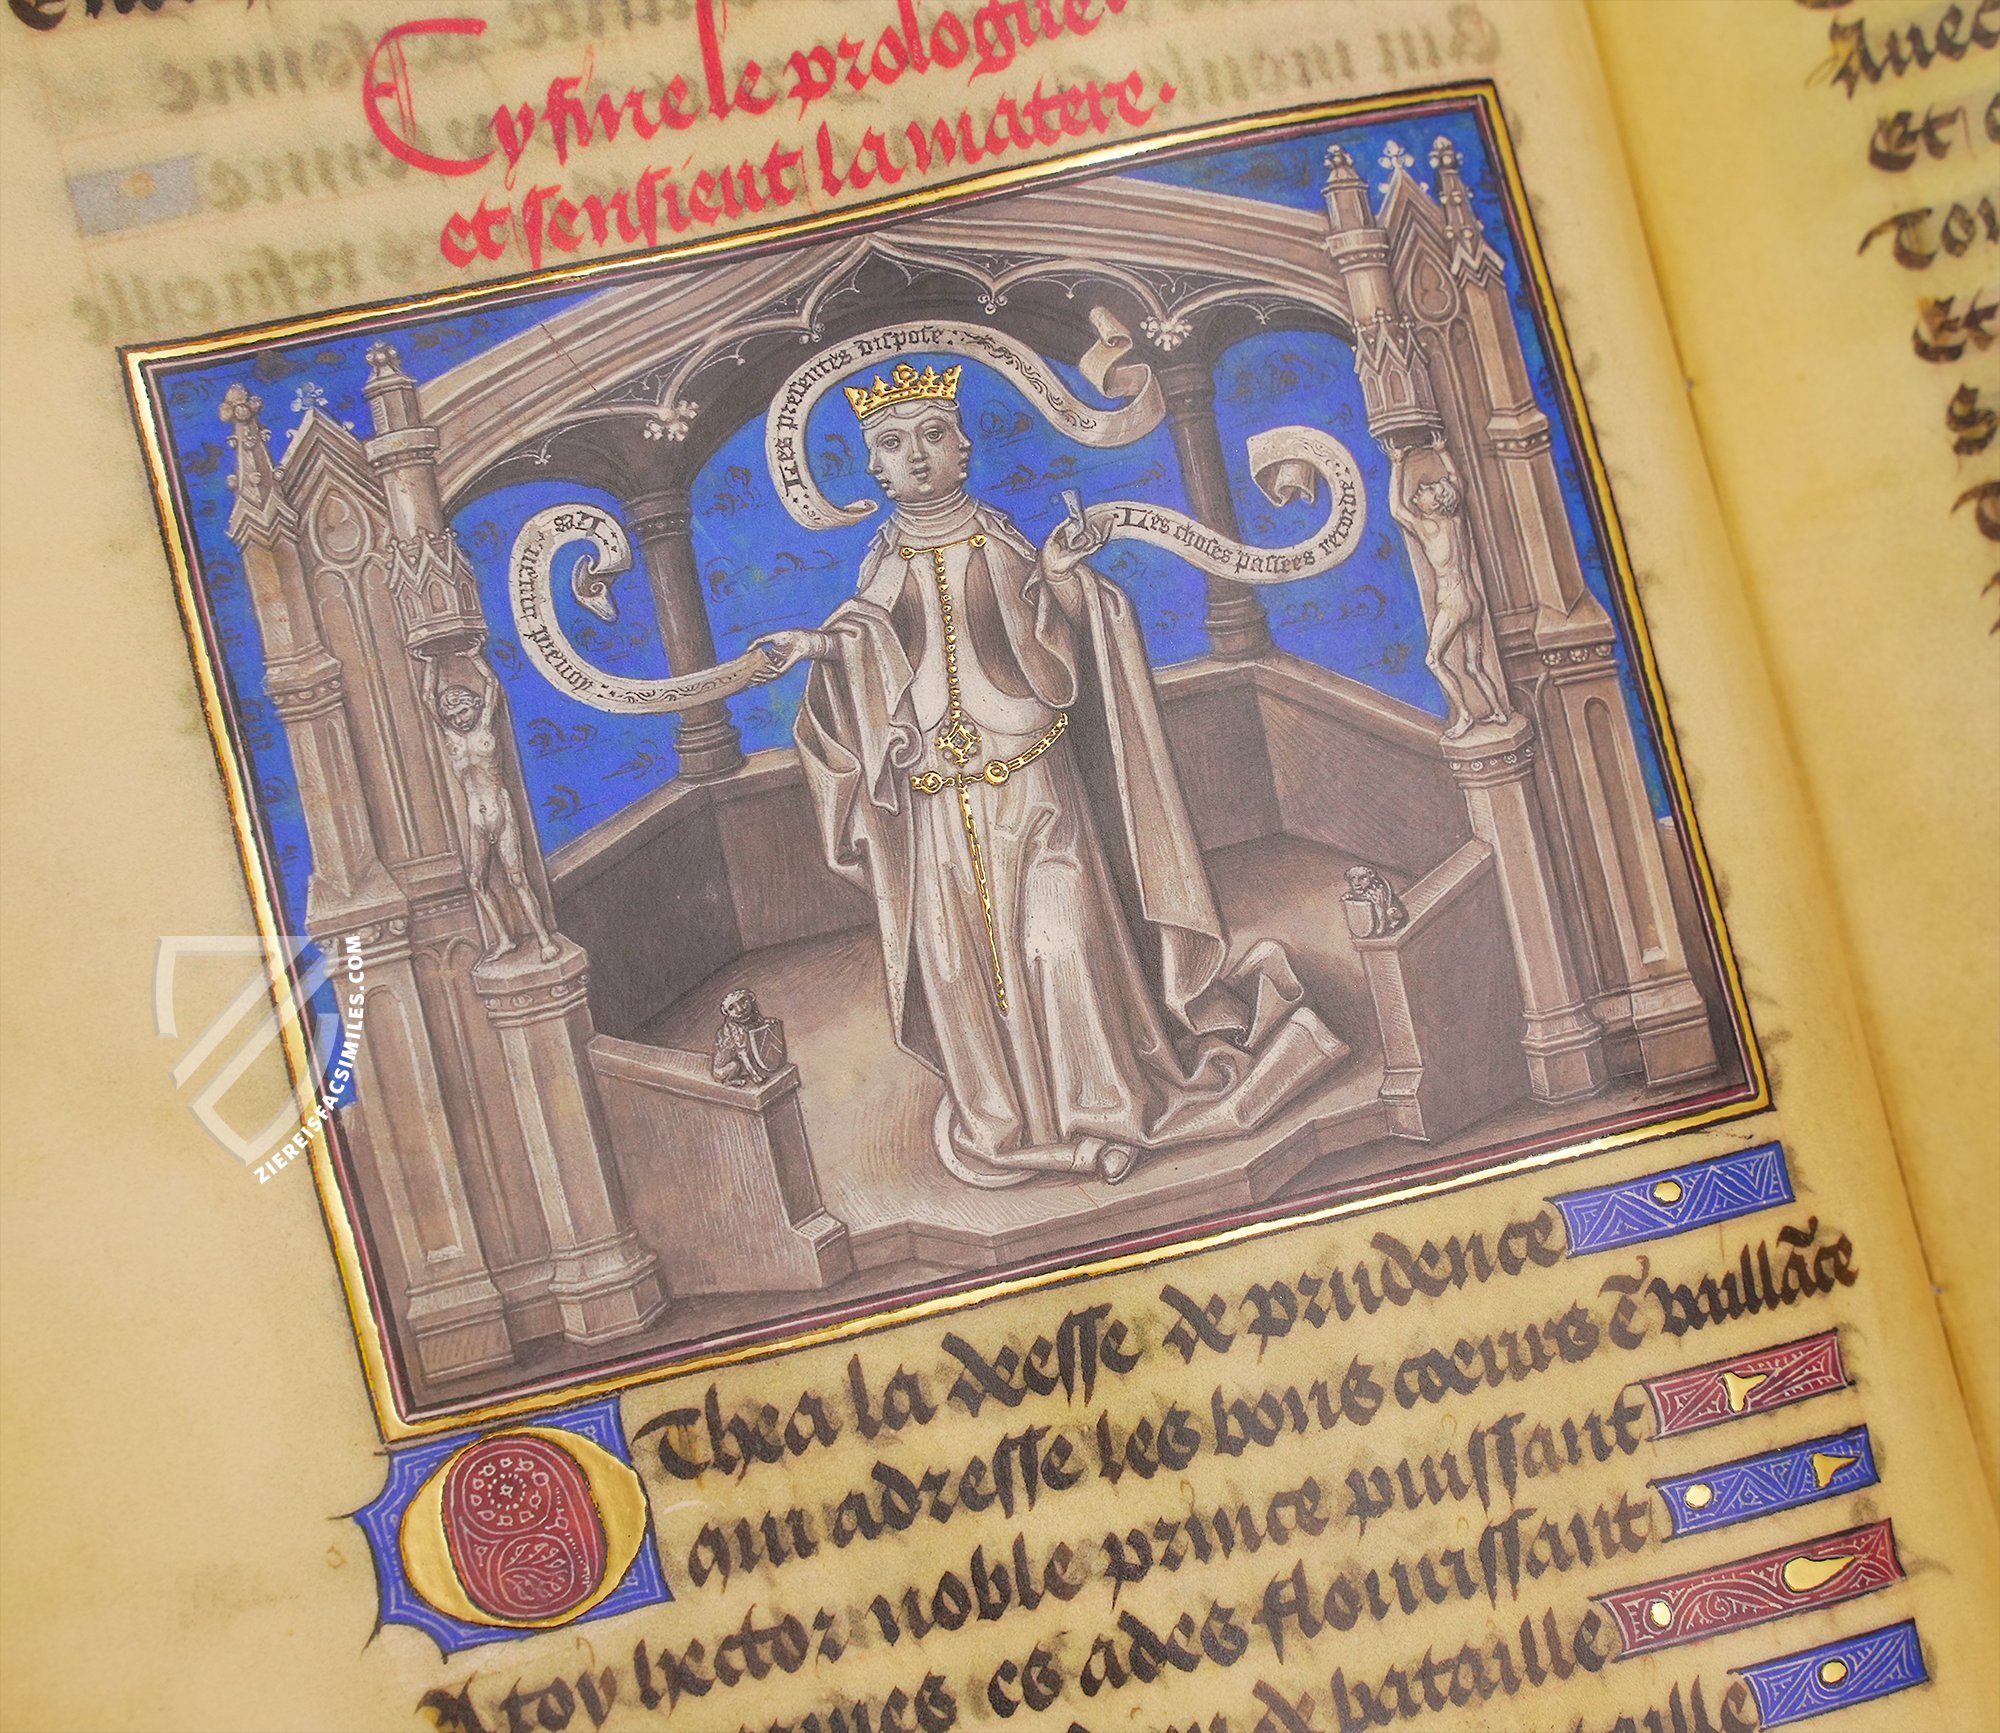 Cy fine le prologue
et sensieut la matere.
Les presentes dispose
Les
Les choses passees recorde
Othea la deesse de prudence
qui adresse les bons coeurs ē vaillāce
A toy hector noble prince puissant
es ades flourissant
de bataille
aille
Avec
Et
Tou
Et
S
ZIEREISFACSIMILES.COM